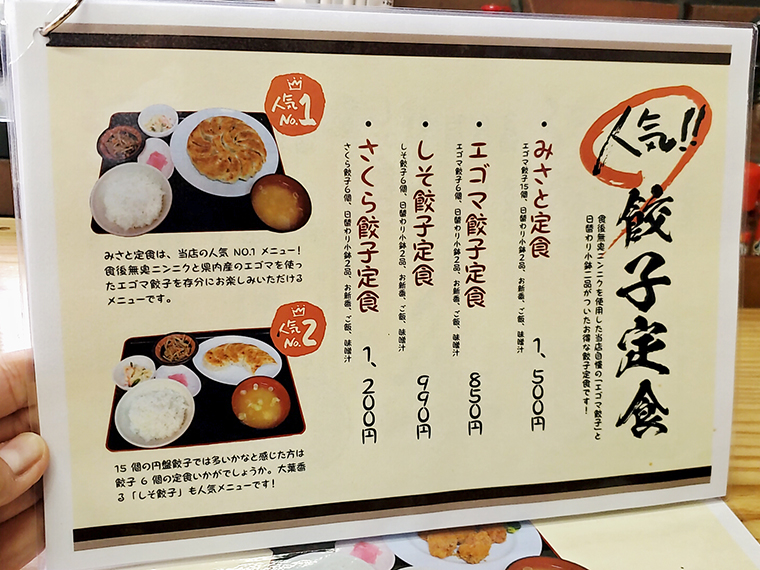 人気!!
餃子定食
食後無臭ニンニクを使用した当店自慢の「エゴマ餃子」と
日替わり小鉢二品がついたお得な餃子定食です！
• みさと定食 1,500円
エゴマ餃子15個、日替わり小鉢2品、お新香、ご飯、味噌汁
• エゴマ餃子定食 850円
エゴマ餃子6個、日替わり小鉢2品、お新香、ご飯、味噌汁
• しそ餃子定食 990円
しそ餃子6個、日替わり小鉢2品、お新香、ご飯、味噌汁
• さくら餃子定食 1,200円
さくら餃子6個、日替わり小鉢2品、お新香、ご飯、味噌汁
人気
No.1
みさと定食は、当店の人気 NO.1 メニュー！
食後無臭ニンニクと県内産のエゴマを使っ
たエゴマ餃子を存分にお楽しみいただける
メニューです。
人気
No.2
15 個の円盤餃子では多いかなと感じた方は
餃子 6 個の定食いかがでしょうか。大葉香
る「しそ餃子」も人気メニューです！